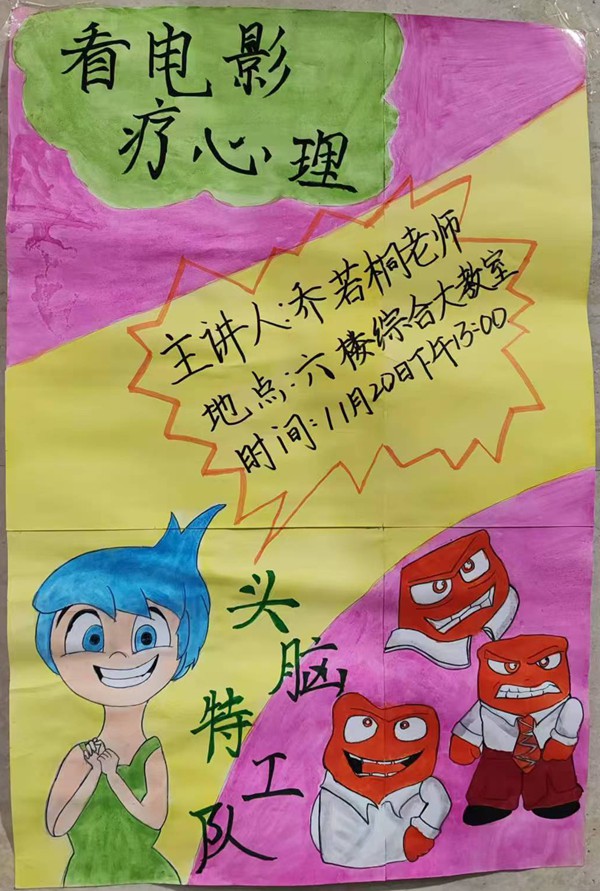 看电影
疗心理
主讲人:乔若桐老师
地点:六楼综合大教室
时间:11月20日下午13:00
头脑
特工队